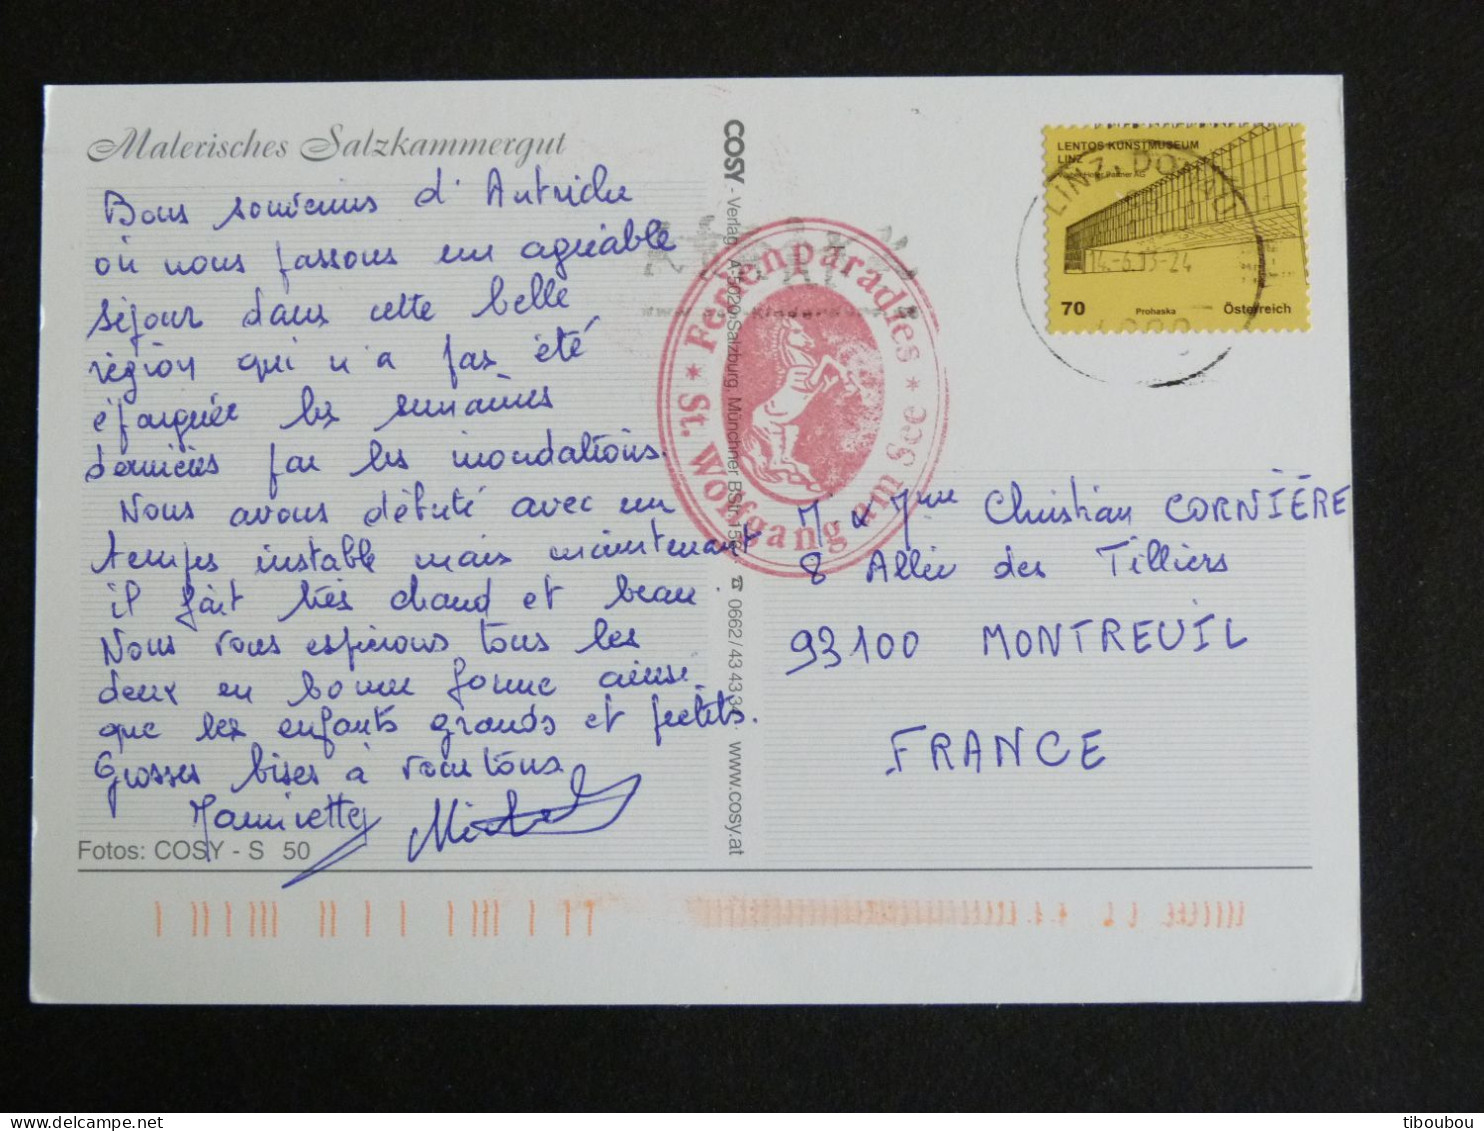 Malerisches Salzkammergut
Bons souvenirs d'Autriche
où nous passons un agréable
séjour dans cette belle
région qui n'a pas été
épargnée les semaines
dernières par les inondations.
Nous avons débuté avec un
temps instable mais maintenant
il fait très chaud et beau.
Nous vous espérons tous les
deux en bonne forme ainsi
que les enfants grands et petits.
Grosses bises à vous tous
Michel
Fotos: COSY - S 50
COSY - Verlag, A-5020 Salzburg, Münchner BStr. ☎ 0662 / 43 43 34 www.cosy.at
Ferienparadies
* St. Wolfgang am See *
LENTOS KUNSTMUSEUM
LINZ
70 Prohaska Österreich
LINZ, DONAU
14.-6.13-24
M & Mme Christian CORNIÈRE
8 Allée des Tilliers
93100 MONTREUIL
FRANCE
tiboubou